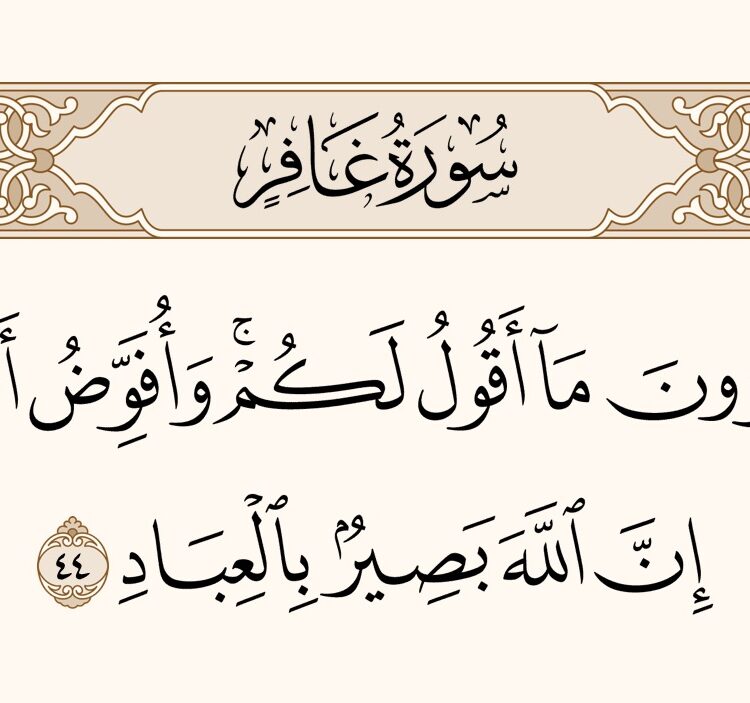 سُورَةُ غَافِرٍ
ونَ مَآ أَقُولُ لَكُمْۚ وَأُفَوِّضُ أَ
إِنَّ ٱللَّهَ بَصِيرُۢ بِٱلْعِبَادِ ٤٤